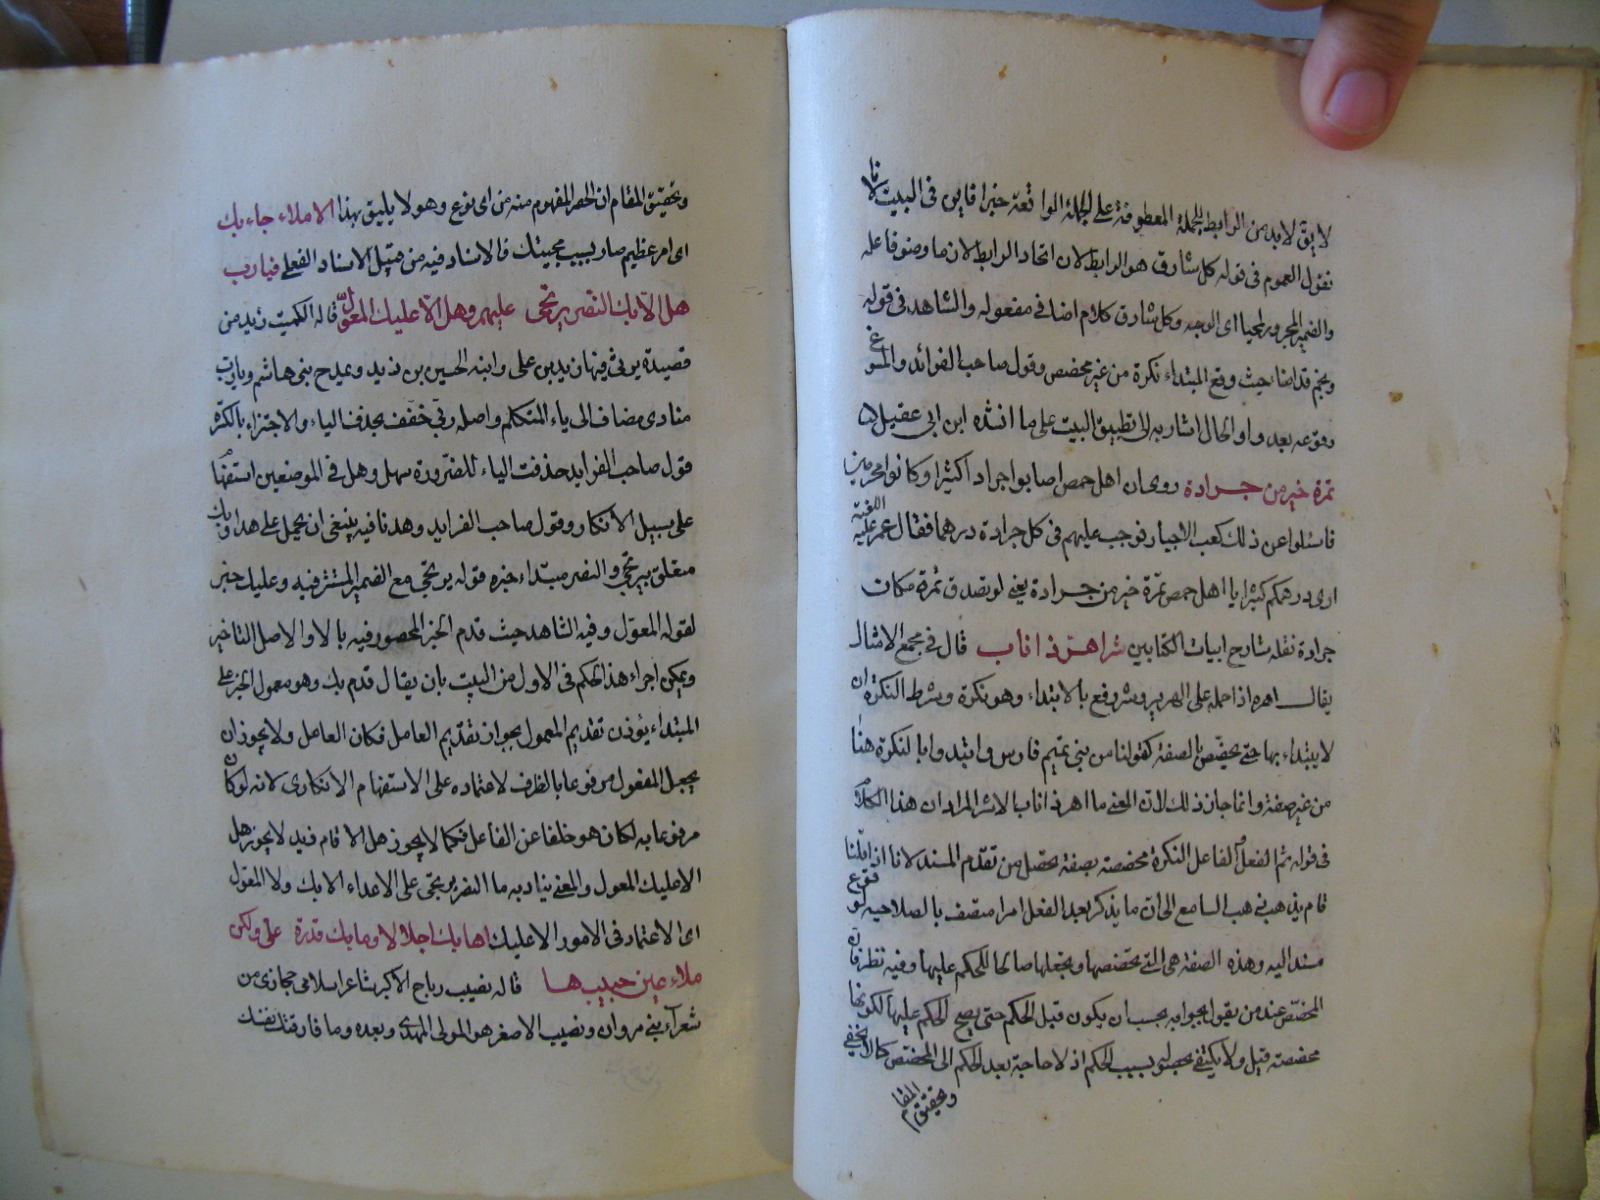 لا يق لابد من الرابط للجملة المعطوفة على الجملة الواقعة خبرا فاين في البيت لانا
نقول العموم في قوله كل شارق هو الرابط لان اتحاد الرابط لازما وضوفاعله
والضمير المجرور لمحيا اى الوجه وكل شارق كلام اضافي مفعوله والشاهد في قوله
ونجم قد اضاء حيث وقع المبتداء نكرة من غير مخصص وقول صاحب الفوائد والمسوغ
وقوعه بعد واو الحال اشار به الى تطبيق البيت على ما انشده ابن ابي عقيل
تمرة خير من جرادة روى ان اهل حمص اصابوا جرادا كثيرا وكانوا محرمين
فاسئلوا عن ذلك كعب الاحبار فوجب عليهم في كل جرادة درهما فقال عمر عليه
ارى درهمكم كثيرا يا اهل حمص تمرة خير من جرادة يعني لو تصدق تمرة مكان
جرادة نقله شارح ابيات الكتابين شر اهر ذا ناب قال في مجمع الامثال
يقال اهره اذا حمله على الهرير وشر رفع بالابتداء وهو نكرة وشرط النكرة ان
لا يبتداء بها حتى يخصص بالصفة كقولنا من بني تميم فارس وابتدوا بالنكرة هنا
من غير صفة وانما جاز ذلك لان المعنى ما اهر ذا ناب الا شر المراد ان هذا الكلام
في قوله ثم الفعل والفاعل النكرة مخصصة بصفة يحصل من تقدم المسند لانا اذا قلنا
قام يذهب ذهب السامع الى ان ما يذكر بعد الفعل امر متصف بالصلاحية لوقوع
مسندا اليه وهذه الصفة هي التي يخصصها ويجعلها صالحا للحكم عليها وفيه نظر فان
المخصص عند من يقول بجوابه يجب ان يكون قبل الحكم حتى يصح الحكم عليها لكونها
مخصصة قبل ولا يكتفى بحصوله بسبب الحكم اذ لا حاجة بعد الحكم الى المخصص كما لا يخفى
وتحقيق المقام
وتحقيق المقام ان الحصر المفهوم منه من اى نوع وهو لا يليق بهذا الاملاء جاء بك
اى امر عظيم صار بسبب مجيئك والاسناد فيه من قبيل الاسناد الفعلي فيا رب
هل الا بك النصر يرتجى عليهم وهل الا عليك المعول قاله الكميت زيد من
قصيدة يرثي فيها زيد بن علي وابنه الحسين بن زيد ويمدح بني هاشم ويا رب
منادى مضاف الى ياء المتكلم واصله ربي خفف بحذف الياء والاجتزاء بالكسرة
قول صاحب الفرايد حذفت الياء للضرورة سهل وهل في الموضعين استفهام
على سبيل الانكار وقول صاحب الفرايد وهدنا فيه ينبغي ان يحمل على هذا وبك
متعلق بيرتجى والنصر مبتداء خبره قوله يرتجى مع الضمير المستتر فيه وعليك خبر
لقوله المعول وفيه الشاهد حيث قدم الخبر المحصور فيه بالا والاصل التاخير
ويمكن اجراء هذا الحكم في الاول من البيت بان يقال قدم بك وهو معمول الخبر على
المبتداء يؤذن تقديم المعمول بجواز تقديم العامل فكان العامل ولا يجوز ان
يجعل المفعول مرفوعا بالظرف لاعتماده على الاستفهام الانكارى لانه لو كان
مرفوعا به لكان هو خلفا عن الفاعل فكما لا يجوز هل الا قام زيد لا يجوز هل
الا عليك المعول والمعنى يناد به ما النصر يرتجى على الاعداء الا بك ولا المعول
اى الاعتماد في الامور الا عليك اهابك اجلالا وما بك قدرة علي ولكن
ملاء عين حبيبها قاله نصيب رباح الاكبر شاعر اسلامي حجازى من
شعراء بني مروان ونصيب الاصغر هو المولى المهدى وبعده وما فارقتك نفسك